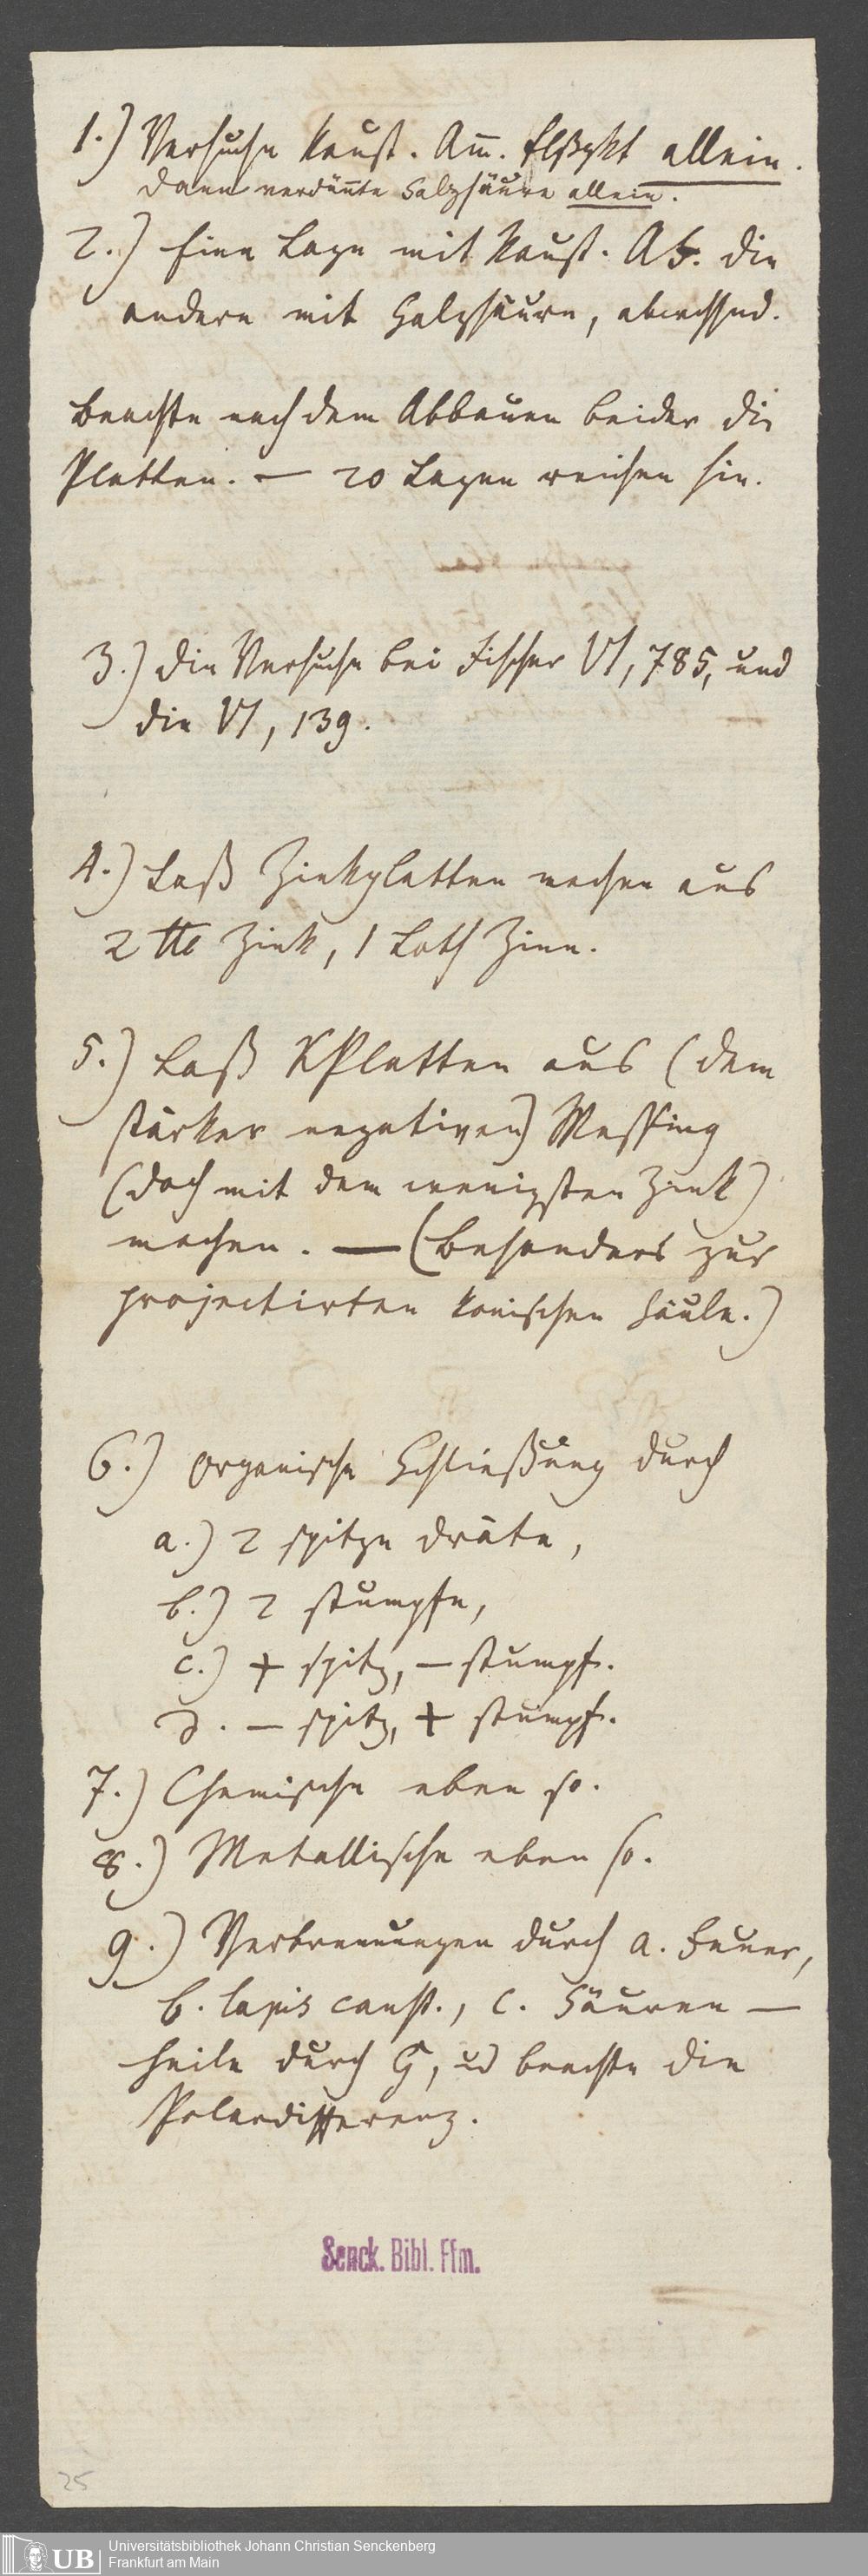 1.) Versuche kaust. Am̅. allein.
Dann verdün̅te Salzsäure allein.
2.) Eine Lage mit kaust. die
andere mit Salzsäure, abwechsnd.
Beachte nach dem Abbauen beider die
Platten. — 20 Lagen reichen hin.
3.) Die Versuche bei Fischer VI, 785, und
die VI, 139.
4.) Laß Zinkplatten machen aus
2 ℔ Zink, 1 Loth Zinn.
5.) Laß KPlatten aus (dem
stärker negativen) Messing
(doch mit dem wenigsten Zink)
machen. — (Besonders zur
projectirten konischen Säule.)
6.) Organische Schließung durch
a.) 2 spitze Dräte,
b.) 2 stumpfe,
c.) + spitz, — stumpf.
d. — spitz, + stumpf.
7.) Chemische eben so.
8.) Metallische eben so.
9.) Verbrennungen durch a. Feuer,
b. lapis caust., c. Säuren —
heile durch G, ud beachte die
Polardifferenz.
Senck. Bibl. Ffm.
25
UB Universitätsbibliothek Johann Christian Senckenberg
Frankfurt am Main